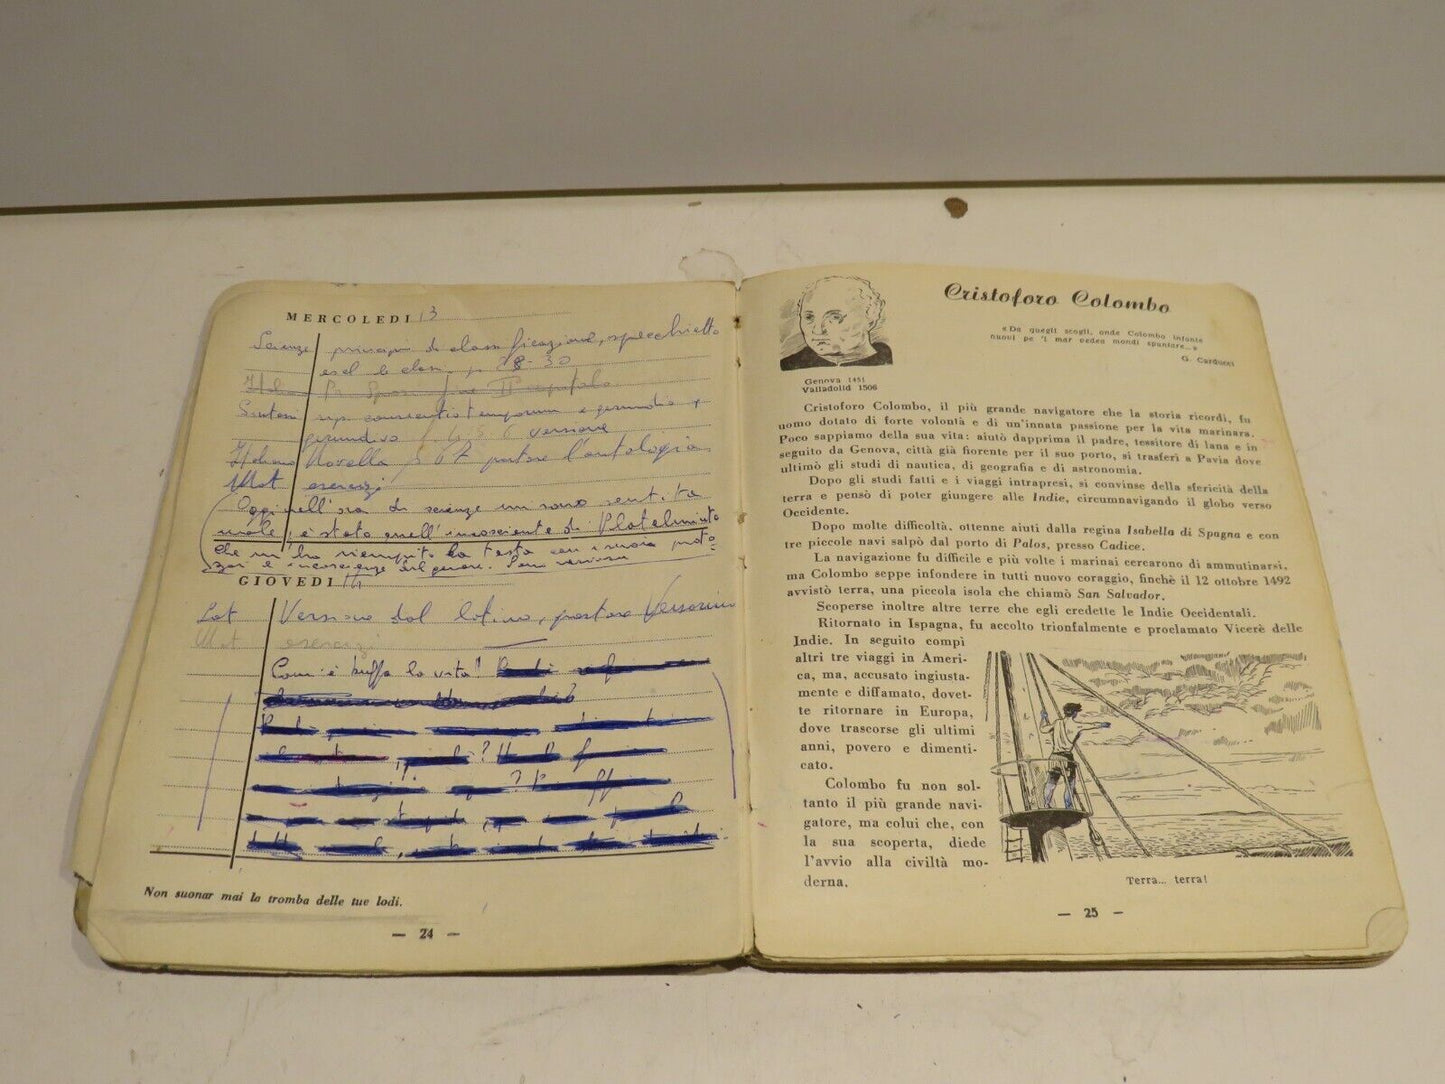 MERCOLEDI 13
Scienze principio di classificazione, specchietto
28-30
Italiano
Sintassi consecutio temporum e gerundio e
gerundivo versione
Italiano Novella p 67 portare l'antologia
Mat esercizi
Oggi nell'ora di scienze mi sono sentita
male, è stato quell'incosciente di Platelminto
che mi ha riempito la testa con i suoi proto-
zoi e incoscienze del genere.
GIOVEDI 14
Lat Versione dal latino, portare Versioni
Mat esercizi
Com'è buffa la vita!
Non suonar mai la tromba delle tue lodi.
— 24 —
Cristoforo Colombo
«Da quegli scogli, onde Colombo infante
nuovi pe 'l mar vedea mondi spuntare...»
G. Carducci
Genova 1451
Valladolid 1506
Cristoforo Colombo, il più grande navigatore che la storia ricordi, fu
uomo dotato di forte volontà e di un'innata passione per la vita marinara.
Poco sappiamo della sua vita: aiutò dapprima il padre, tessitore di lana e in
seguito da Genova, città già fiorente per il suo porto, si trasferì a Pavia dove
ultimò gli studi di nautica, di geografia e di astronomia.
Dopo gli studi fatti e i viaggi intrapresi, si convinse della sfericità della
terra e pensò di poter giungere alle Indie, circumnavigando il globo verso
Occidente.
Dopo molte difficoltà, ottenne aiuti dalla regina Isabella di Spagna e con
tre piccole navi salpò dal porto di Palos, presso Cadice.
La navigazione fu difficile e più volte i marinai cercarono di ammutinarsi,
ma Colombo seppe infondere in tutti nuovo coraggio, finchè il 12 ottobre 1492
avvistò terra, una piccola isola che chiamò San Salvador.
Scoperse inoltre altre terre che egli credette le Indie Occidentali.
Ritornato in Ispagna, fu accolto trionfalmente e proclamato Vicerè delle
Indie. In seguito compì
altri tre viaggi in Ameri-
ca, ma, accusato ingiusta-
mente e diffamato, dovet-
te ritornare in Europa,
dove trascorse gli ultimi
anni, povero e dimenti-
cato.
Colombo fu non sol-
tanto il più grande navi-
gatore, ma colui che, con
la sua scoperta, diede
l'avvio alla civiltà mo-
derna.
Terra... terra!
— 25 —